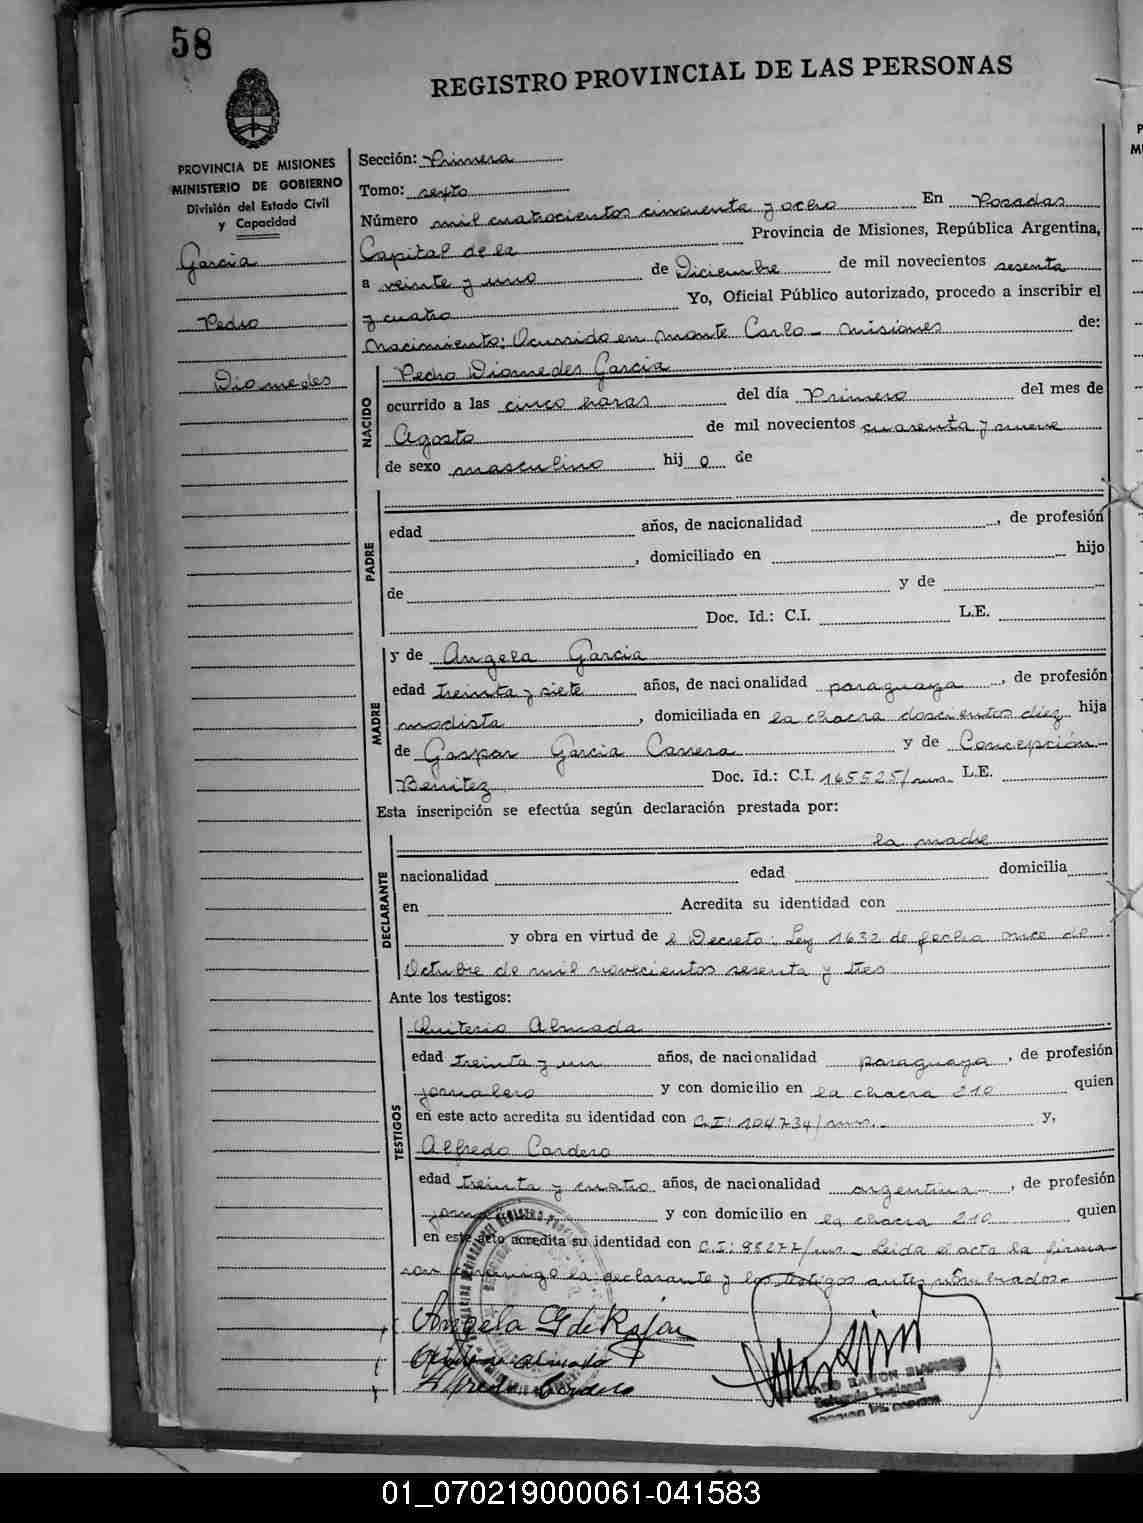 58
REGISTRO PROVINCIAL DE LAS PERSONAS
PROVINCIA DE MISIONES
MINISTERIO DE GOBIERNO
División del Estado Civil
y Capacidad
Garcia
Pedro
Diomedes
Sección: Primera
Tomo: sexto
Número mil cuatrocientos cincuenta y ocho En Posadas
Capital de la Provincia de Misiones, República Argentina,
a veinte y uno de Diciembre de mil novecientos sesenta
y cuatro Yo, Oficial Público autorizado, procedo a inscribir el
Nacimiento: Ocurrido en Monte Carlo - Misiones de:
NACIDO
Pedro Diomedes Garcia
ocurrido a las cinco horas del día Primero del mes de
Agosto de mil novecientos cuarenta y nueve
de sexo masculino hij o de
PADRE
edad años, de nacionalidad , de profesión
, domiciliado en hijo
de y de
Doc. Id.: C.I. L.E.
MADRE
y de Angela Garcia
edad treinta y siete años, de nacionalidad paraguaya , de profesión
modista , domiciliada en la chacra doscientos diez hija
de Gaspar Garcia Carrera y de Concepción
Benitez Doc. Id.: C.I. 165525/mnes. L.E.
Esta inscripción se efectúa según declaración prestada por:
DECLARANTE
la madre
nacionalidad edad domicilia
en Acredita su identidad con
y obra en virtud de l Decreto: Ley 1632 de fecha once de
Octubre de mil novecientos sesenta y tres
Ante los testigos:
TESTIGOS
Quiterio Almada
edad treinta y un años, de nacionalidad paraguaya , de profesión
jornalero y con domicilio en la chacra 210 quien
en este acto acredita su identidad con C.I: 104734/mnes.- y,
Alfredo Cardero
edad treinta y cuatro años, de nacionalidad argentina , de profesión
y con domicilio en la chacra 210 quien
en este acto acredita su identidad con C.I: 98277/mns - Leida el acta la firma-
ron conmigo la declarante y los testigos antes nombrados.-
Angela G de Rojas
Almada
Alfredo Cordero
RAMON
01_070219000061-041583